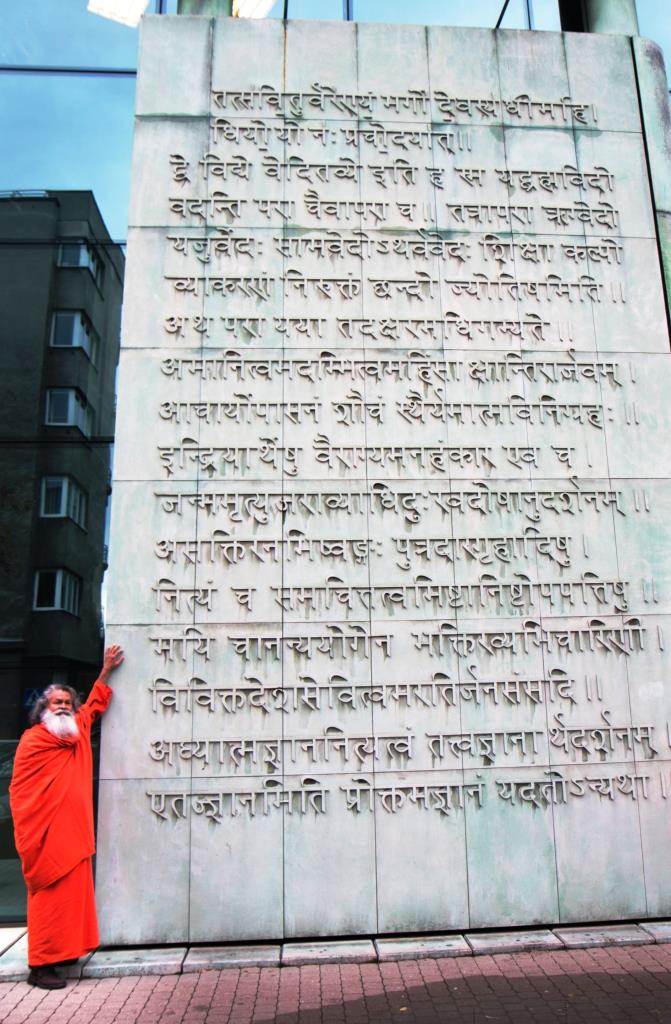 तत्स॑वि॒तुर्वरे॑ण्यं॒ भर्गो॑ दे॒वस्य॑ धीमहि।
धियो॒ यो नः॑ प्रचो॒दया॑त्॥
द्वे विद्ये वेदितव्ये इति ह स्म यद्ब्रह्मविदो
वदन्ति परा चैवापरा च॥ तत्रापरा ऋग्वेदो
यजुर्वेदः सामवेदोऽथर्ववेदः शिक्षा कल्पो
व्याकरणं निरुक्तं छन्दो ज्योतिषमिति॥
अथ परा यया तदक्षरमधिगम्यते॥
अमानित्वमदम्भित्वमहिंसा क्षान्तिरार्जवम्।
आचार्योपासनं शौचं स्थैर्यमात्मविनिग्रहः॥
इन्द्रियार्थेषु वैराग्यमनहंकार एव च।
जन्ममृत्युजराव्याधिदुःखदोषानुदर्शनम्॥
असक्तिरनभिष्वङ्गः पुत्रदारगृहादिषु।
नित्यं च समचित्तत्वमिष्टानिष्टोपपत्तिषु॥
मयि चानन्ययोगेन भक्तिरव्यभिचारिणी।
विविक्तदेशसेवित्वमरतिर्जनसंसदि॥
अध्यात्मज्ञाननित्यत्वं तत्त्वज्ञानार्थदर्शनम्।
एतज्ज्ञानमिति प्रोक्तमज्ञानं यदतोऽन्यथा॥